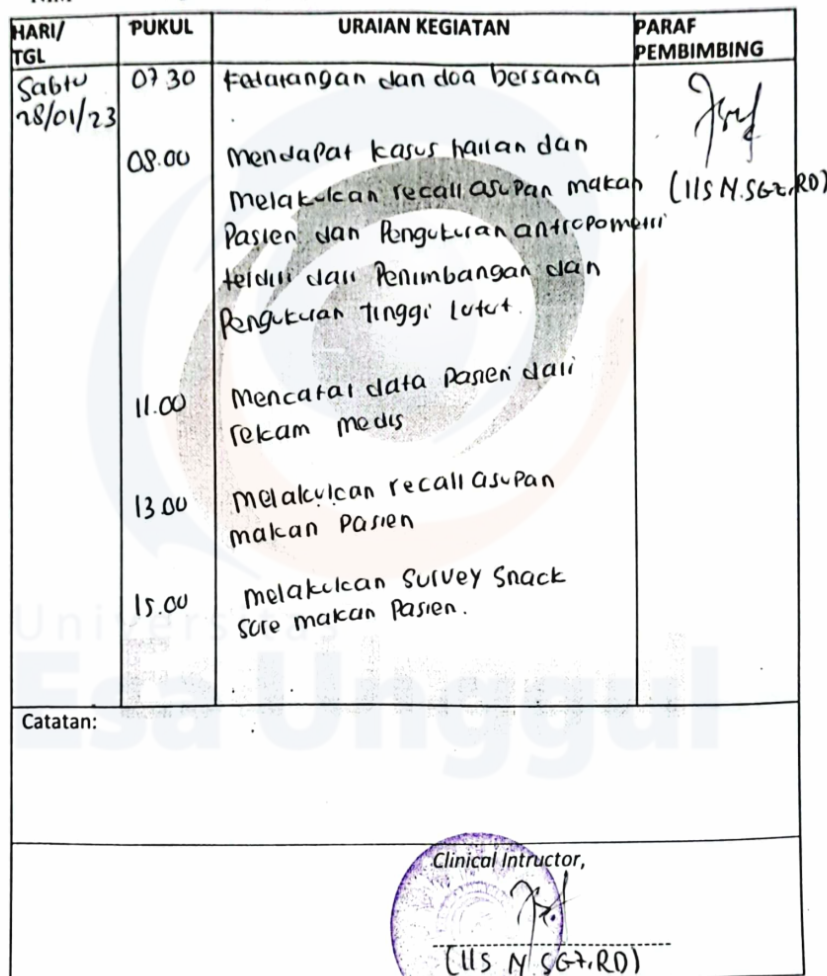 HARI/ TGL PUKUL URAIAN KEGIATAN PARAF PEMBIMBING
Sabtu 28/01/23
07.30 Kedatangan dan doa bersama
08.00 Mendapat kasus harian dan
melakukan recall asupan makan
Pasien dan Pengukuran antropometri
terdiri dari Penimbangan dan
Pengukuran tinggi lutut.
(IIS N.SGz,RD)
11.00 Mencatat data Pasien dari
rekam medis
13.00 melakukan recall asupan
makan Pasien
15.00 melakukan Survey Snack
Sore makan Pasien.
Universitas
Esa Unggul
Catatan:
Clinical Intructor,
(IIS N SGz,RD)